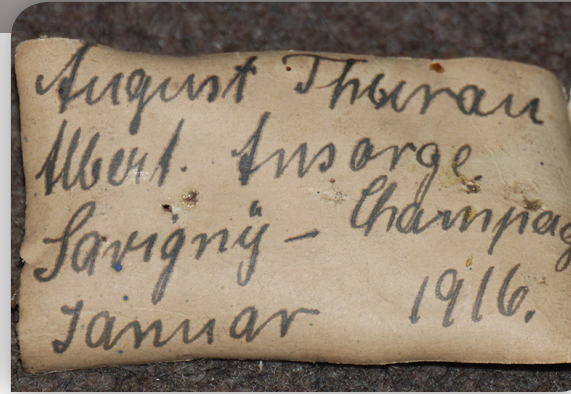 August Thurau
Albert. Ansorge.
Savigny – Champag
Januar 1916.